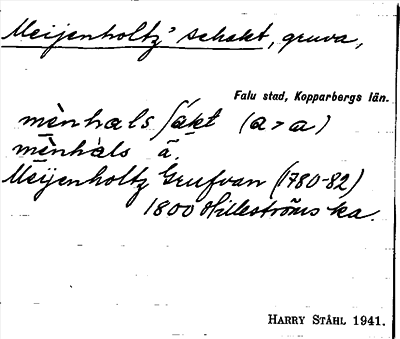 Meijenholtz' schakt, gruva,
Falu stad, Kopparbergs län.
mènhals ʃákt (a>a)
mènhàls ā.
Meijenholtz Grufvan (1780-82)
1800 Hilleströms ka.
HARRY STÅHL 1941.